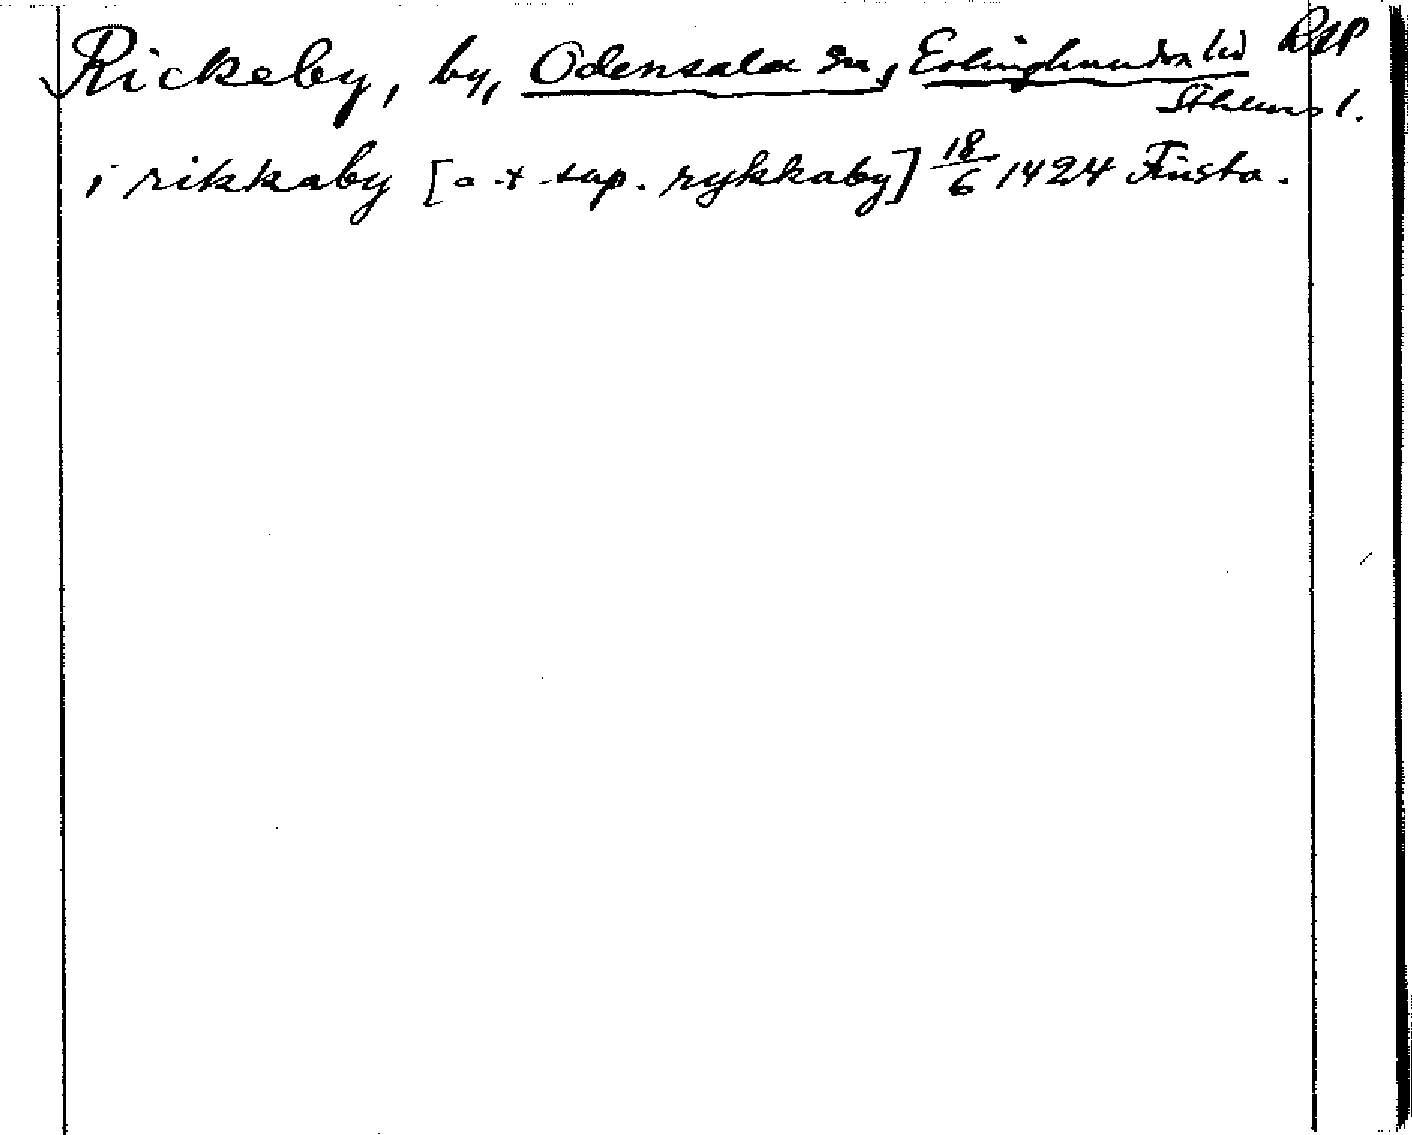 Rickeby, by, Odensala sn, Erlinghundra hd RAP
Sthlms l.
i rikkaby [a t sup. rykkaby] 18/6 1424 Finsta.